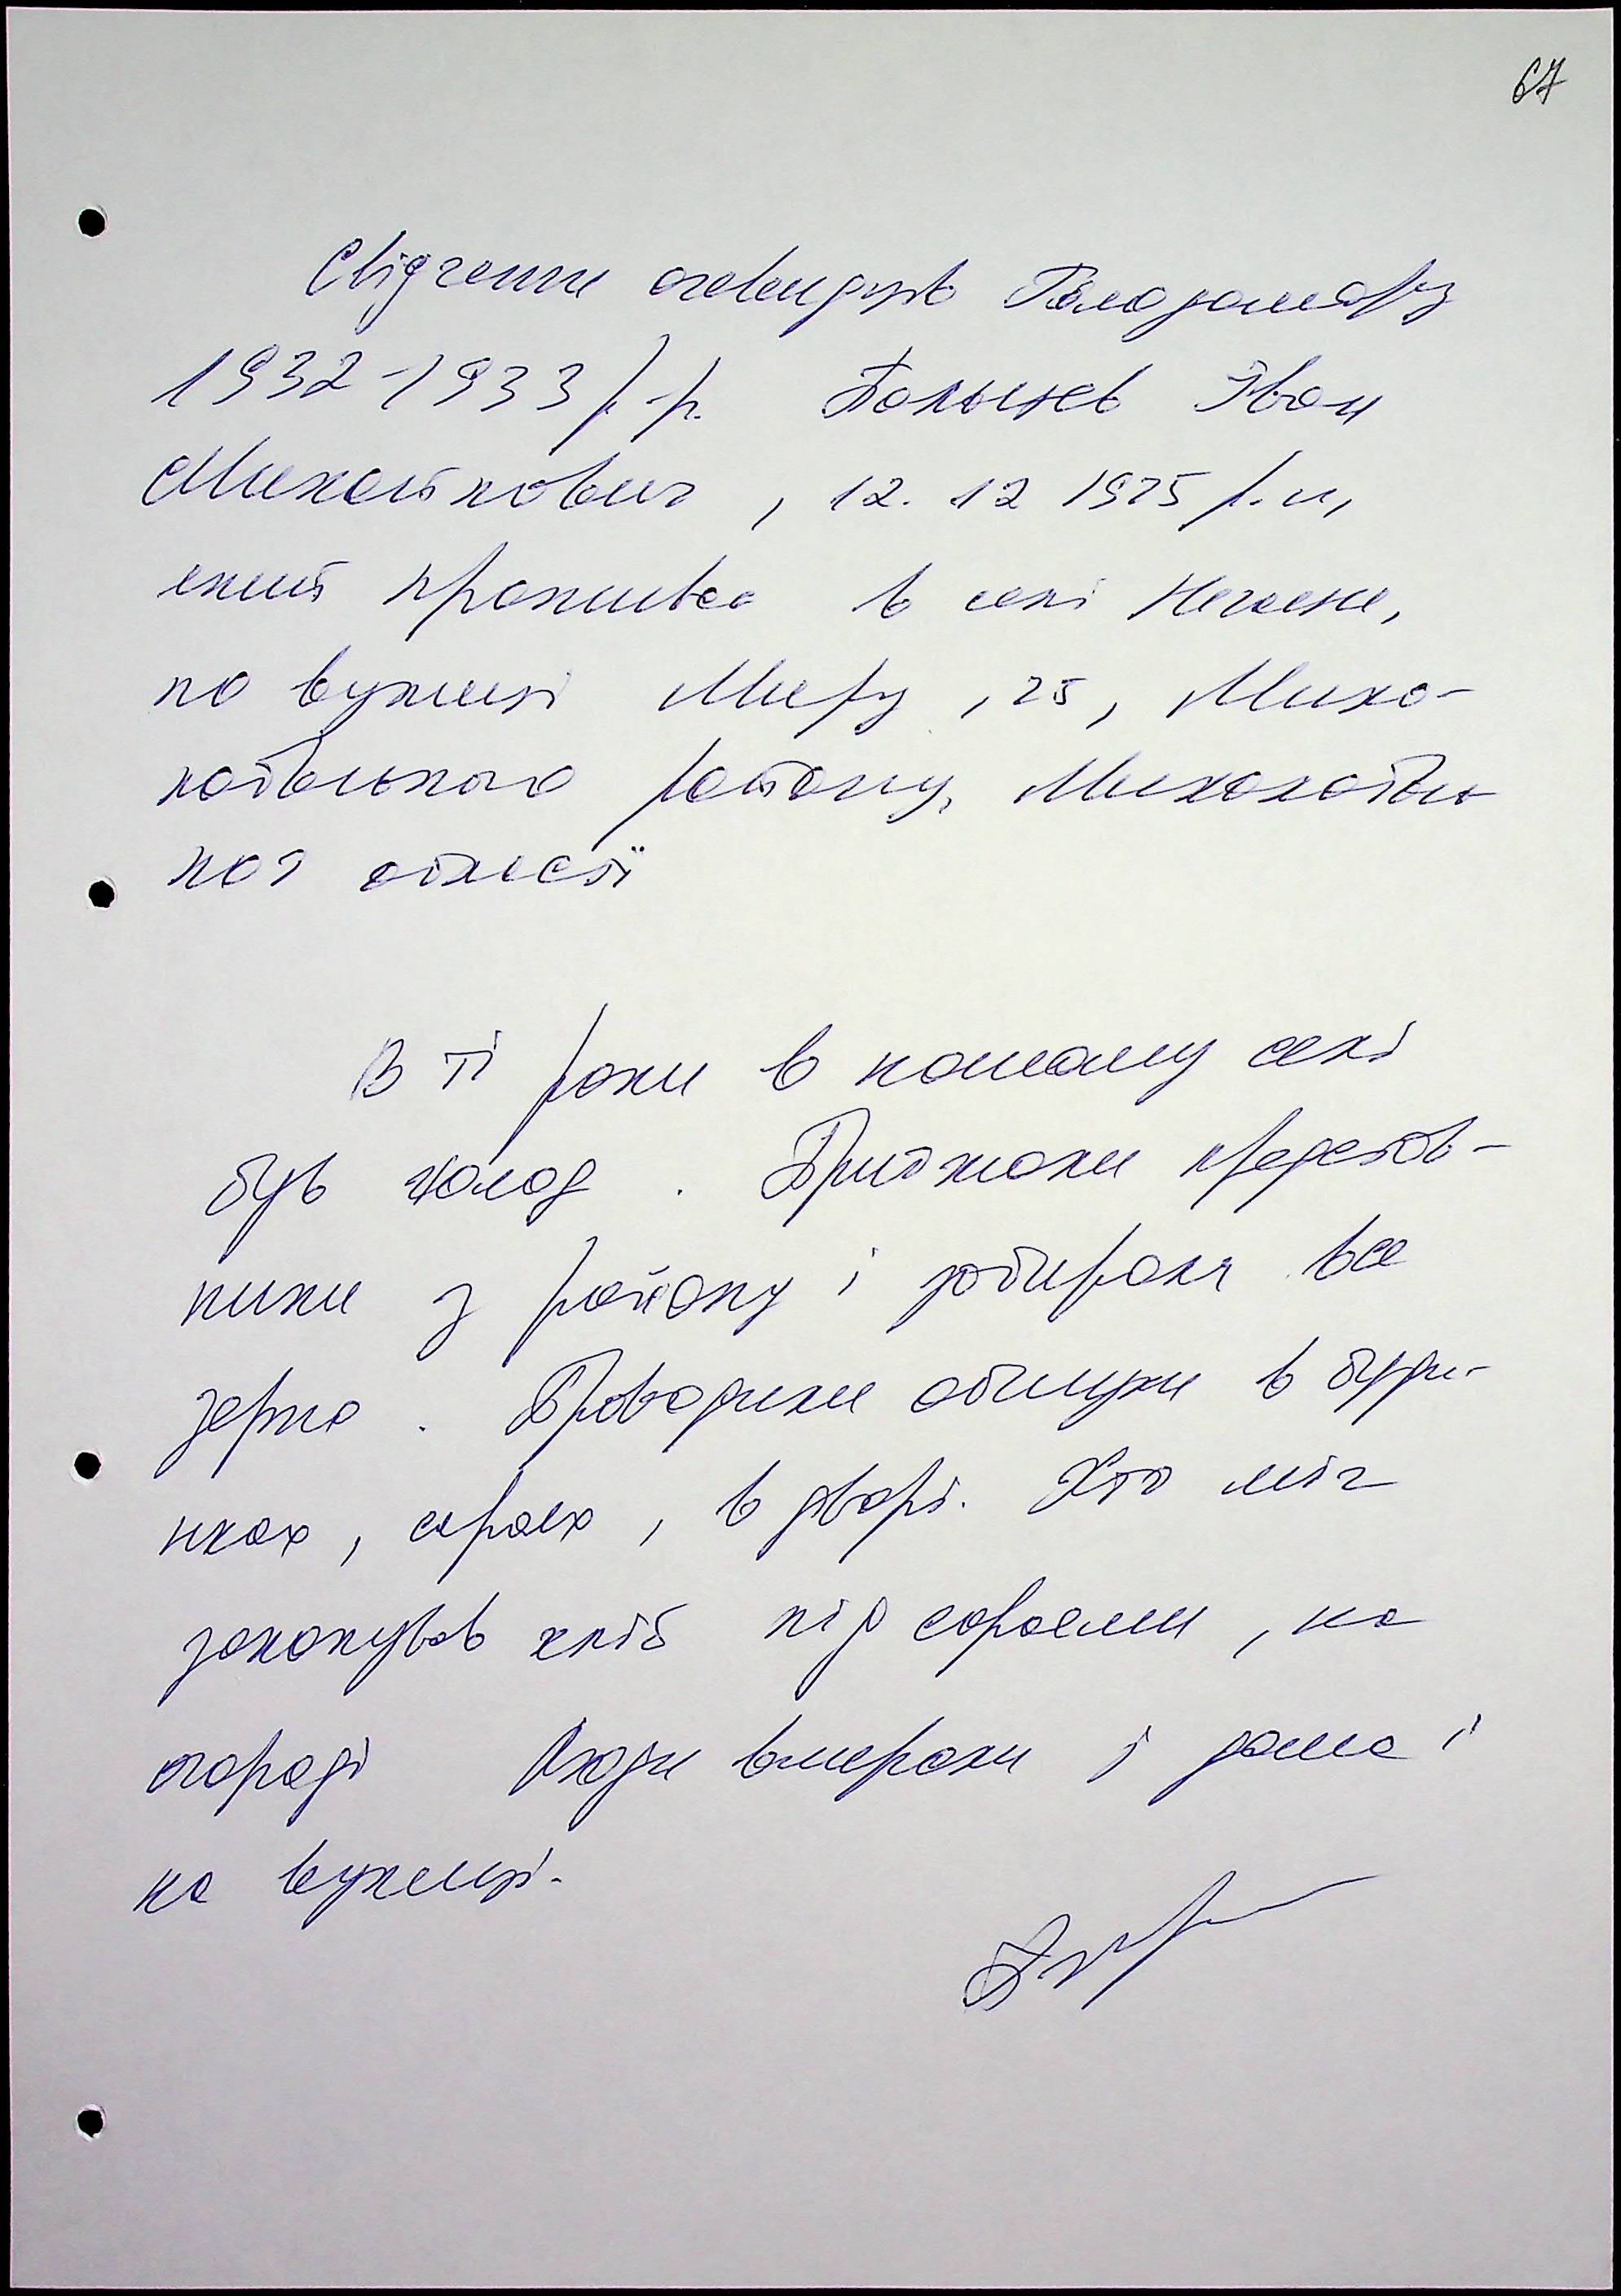 67
Свідчення очевидців Голодомору
1932-1933 р.р. Іван
Михайлович, 12.12 1925 р.н,
який проживає в селі Нечаяне,
по вулиці Миру, 25, Мико-
лаївського району, Миколаївсь
кої області
В ті роки в нашому селі
був голод. Приїжжали представ-
ники з району і забирали все
зерно. Проводили обшуки в буди-
нках, сараях, в дворі. Хто міг
закопував хліб під сараями, на
огороді Люди вмирали і дома і
на вулиці.